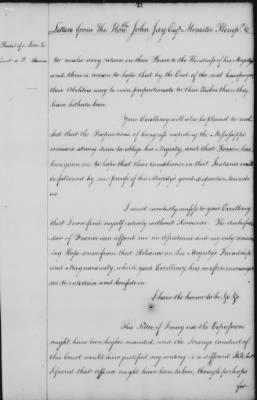 Letters from The Honble John Jay Esqr Minister Plenipo. &c
to make every return in their Power to the Kindness of his Majesty
and there is reason to hope that by the End of the next Campaign
their Abilities may be more proportionate to their Wishes than they
have hitherto been
Your Excellency will also be pleased to
that the Propositions of Congress respecting the Mississippi
evinced a strong desire to oblige his Majesty, and that Reason has
been given me to hope that their compliance in that Instance would
be followed by new proofs of his Majesty's good disposition towards
us
I must candidly confess to your Excellency
that I now find myself entirely without Resource. The Ambassa
dor of France can afford me no Assistance and my only remain
ing Hope arises from that Reliance on his Majesty's Friendship
and Magnanimity, which your Excellency has so often encouraged
me to entertain and confide in
I have the honor to be &c &c
This Notice of Injury not the Expression
might have been higher mounted, and the strange conduct of
this Court would have justified my writing in a different Stile, but
I feared that offence might have been taken, though perhaps
for